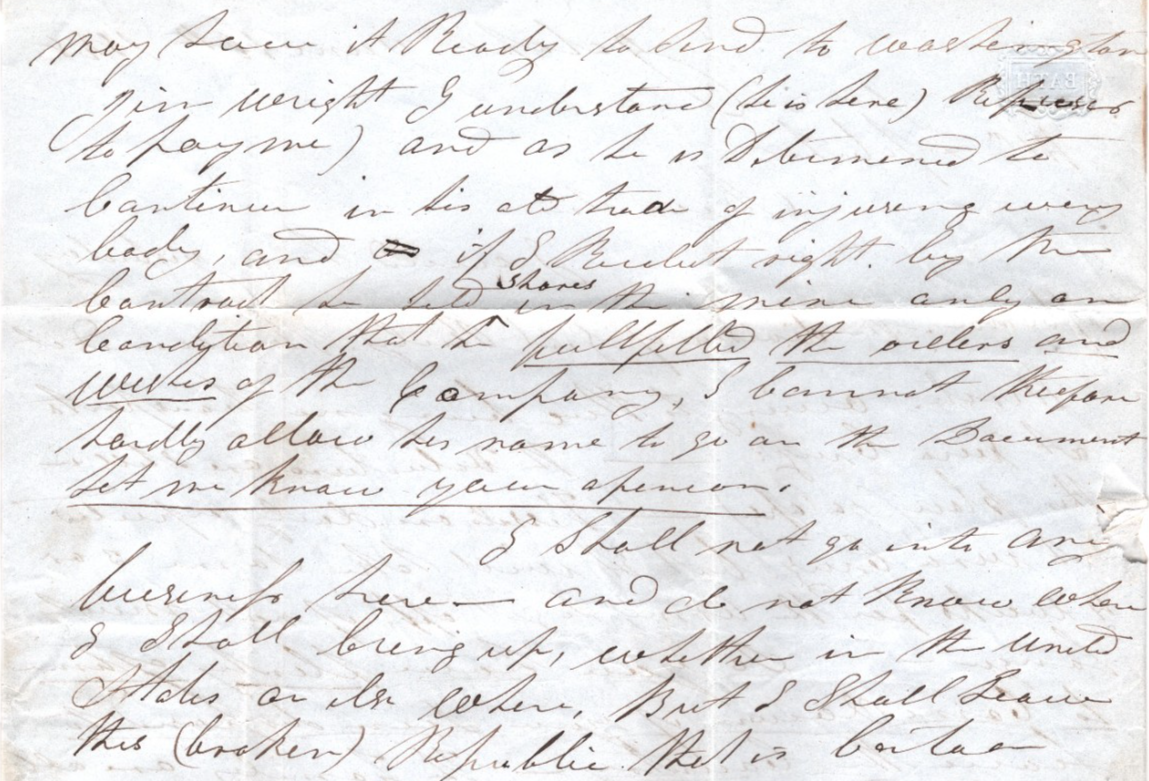 may have it Ready to Send to Washington
Jim Wright I understand (he is here) Refuses
to pay me) and as he is Determened to
Continue in his old trade of injuring every
body, and if I Recolect right. by the
Contract he held shares in the mine only on
Condition that he fullfilled the orders and
wishes of the Company, I cannot therefore
hardly allow his name to go on the Document
let me know your openion.
I Shall not go into any
buseness here and do not Know where
I Shall bring up, whether in the United
States or else where, But I Shall Leave
this (broken) Republic. that is Certain
BATH